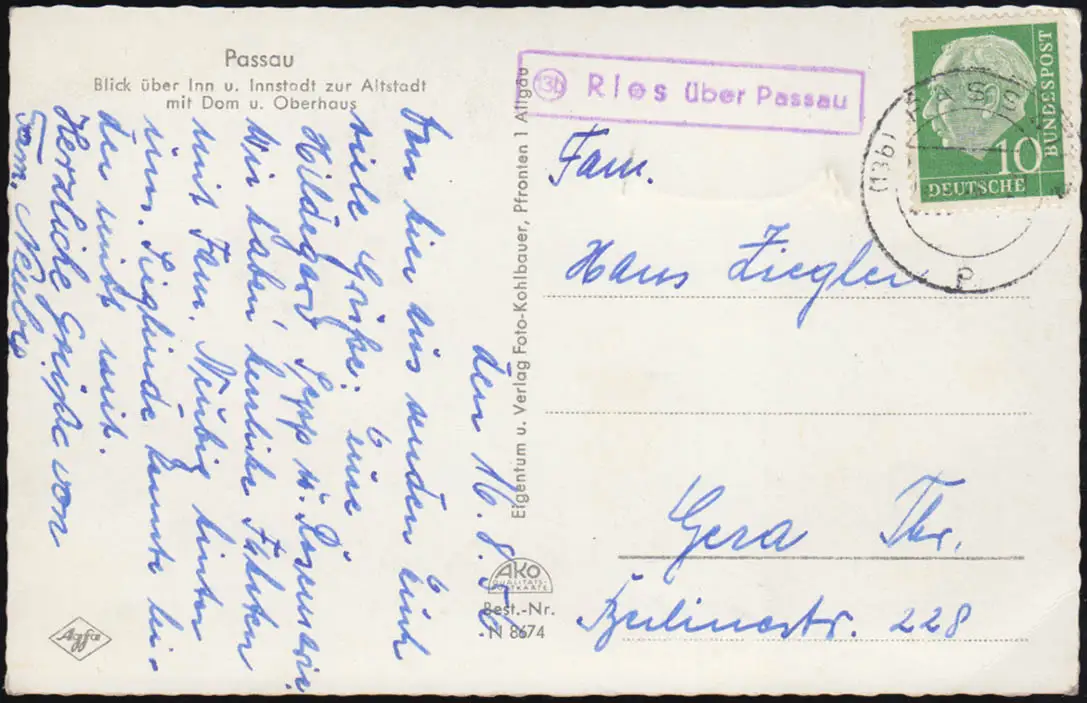 Passau
Blick über Inn u. Innstadt zur Altstadt
mit Dom u. Oberhaus
den 16. 8. 56
Von hier aus senden Euch
viele Grüße: eine
Hildegard Sepp u. Rosemarie
Wir haben herrliche Fahrten
mit Fam. Neubig hinter
uns. Sieglinde konnte lei-
der nicht mit.
Herzliche Grüße von
Fam. Neubig
Eigentum u. Verlag Foto-Kohlbauer, Pfronten 1 Allgäu
13b Ries über Passau
10
DEUTSCHE
BUNDESPOST
(13b) PASS
p
Fam.
Hans Ziegler
Gera Thr.
Berlinerstr. 228
AKO
QUALITÄTS-
POSTKARTE
Best.-Nr.
N 8674
Agfa